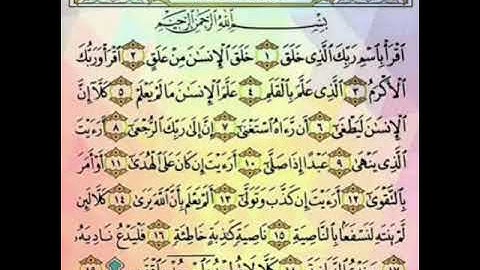 بِسْمِ ٱللَّهِ ٱلرَّحْمَٰنِ ٱلرَّحِيمِ
ٱقْرَأْ بِٱسْمِ رَبِّكَ ٱلَّذِى خَلَقَ ١ خَلَقَ ٱلْإِنسَٰنَ مِنْ عَلَقٍ ٢ ٱقْرَأْ وَرَبُّكَ
ٱلْأَكْرَمُ ٣ ٱلَّذِى عَلَّمَ بِٱلْقَلَمِ ٤ عَلَّمَ ٱلْإِنسَٰنَ مَا لَمْ يَعْلَمْ ٥ كَلَّآ إِنَّ
ٱلْإِنسَٰنَ لَيَطْغَىٰٓ ٦ أَن رَّءَاهُ ٱسْتَغْنَىٰٓ ٧ إِنَّ إِلَىٰ رَبِّكَ ٱلرُّجْعَىٰٓ ٨ أَرَءَيْتَ
ٱلَّذِى يَنْهَىٰ ٩ عَبْدًا إِذَا صَلَّىٰٓ ١٠ أَرَءَيْتَ إِن كَانَ عَلَى ٱلْهُدَىٰٓ ١١ أَوْ أَمَرَ
بِٱلتَّقْوَىٰٓ ١٢ أَرَءَيْتَ إِن كَذَّبَ وَتَوَلَّىٰٓ ١٣ أَلَمْ يَعْلَم بِأَنَّ ٱللَّهَ يَرَىٰ ١٤ كَلَّا لَئِن
لَّمْ يَنتَهِ لَنَسْفَعًۢا بِٱلنَّاصِيَةِ ١٥ نَاصِيَةٍ كَٰذِبَةٍ خَاطِئَةٍ ١٦ فَلْيَدْعُ نَادِيَهُۥ